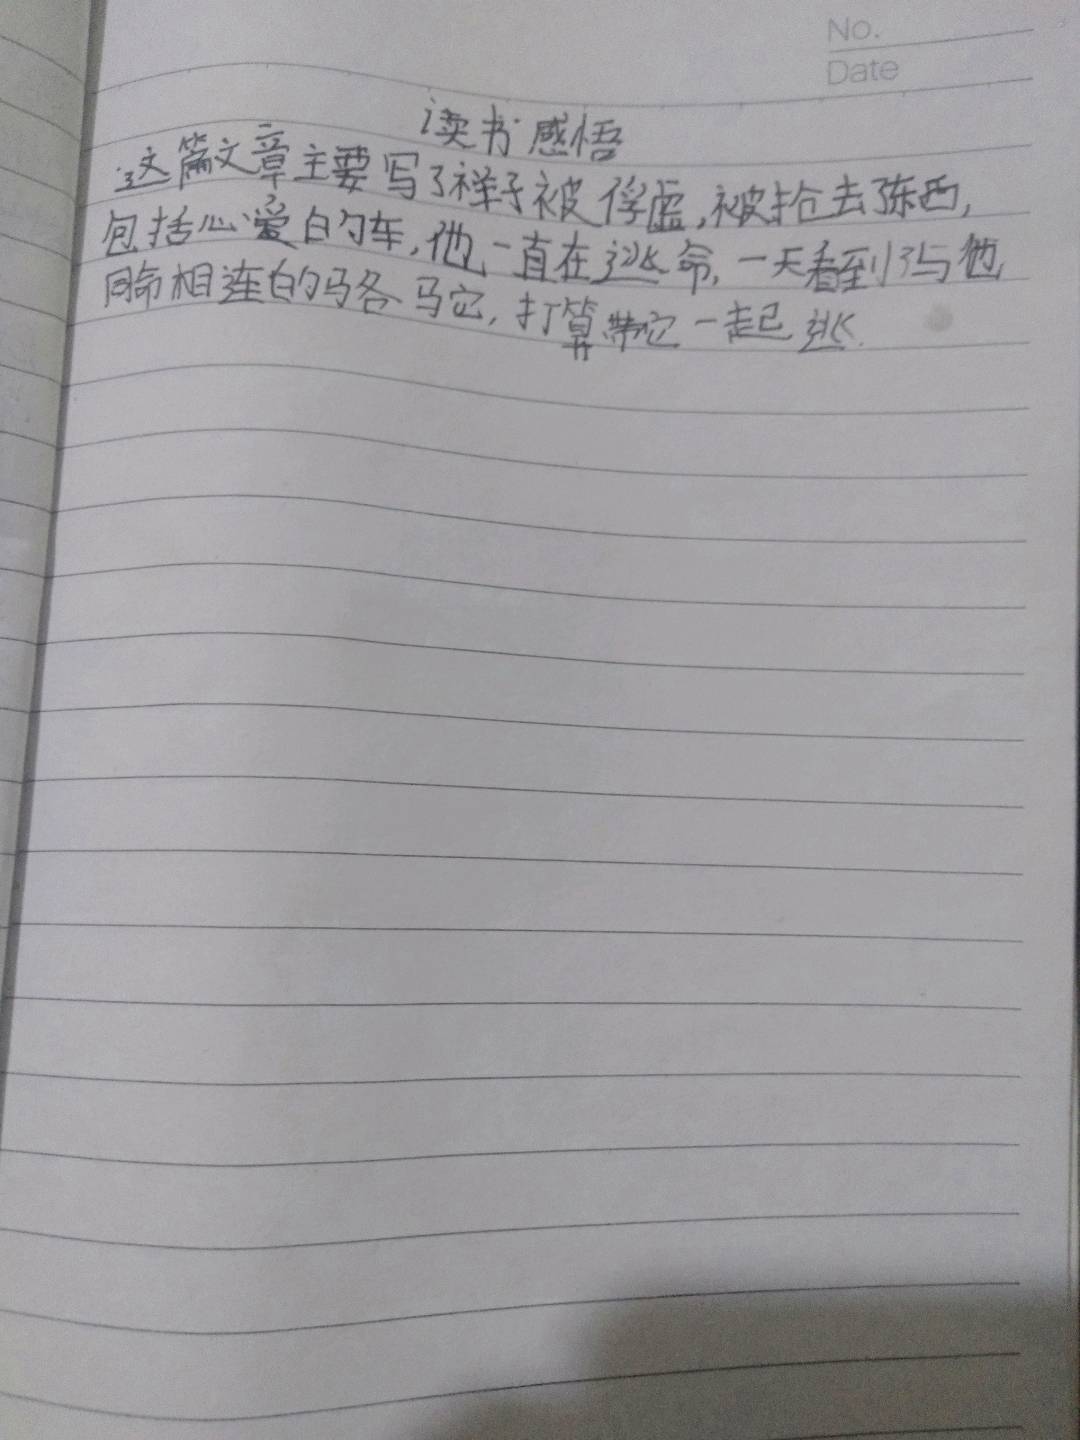 No.
Date
读书感悟
这篇文章主要写了祥子被俘虚,被抢去东西,
包括心爱的车,他一直在逃命,一天看到了与他
同命相连的骆驼,打算带它一起逃.